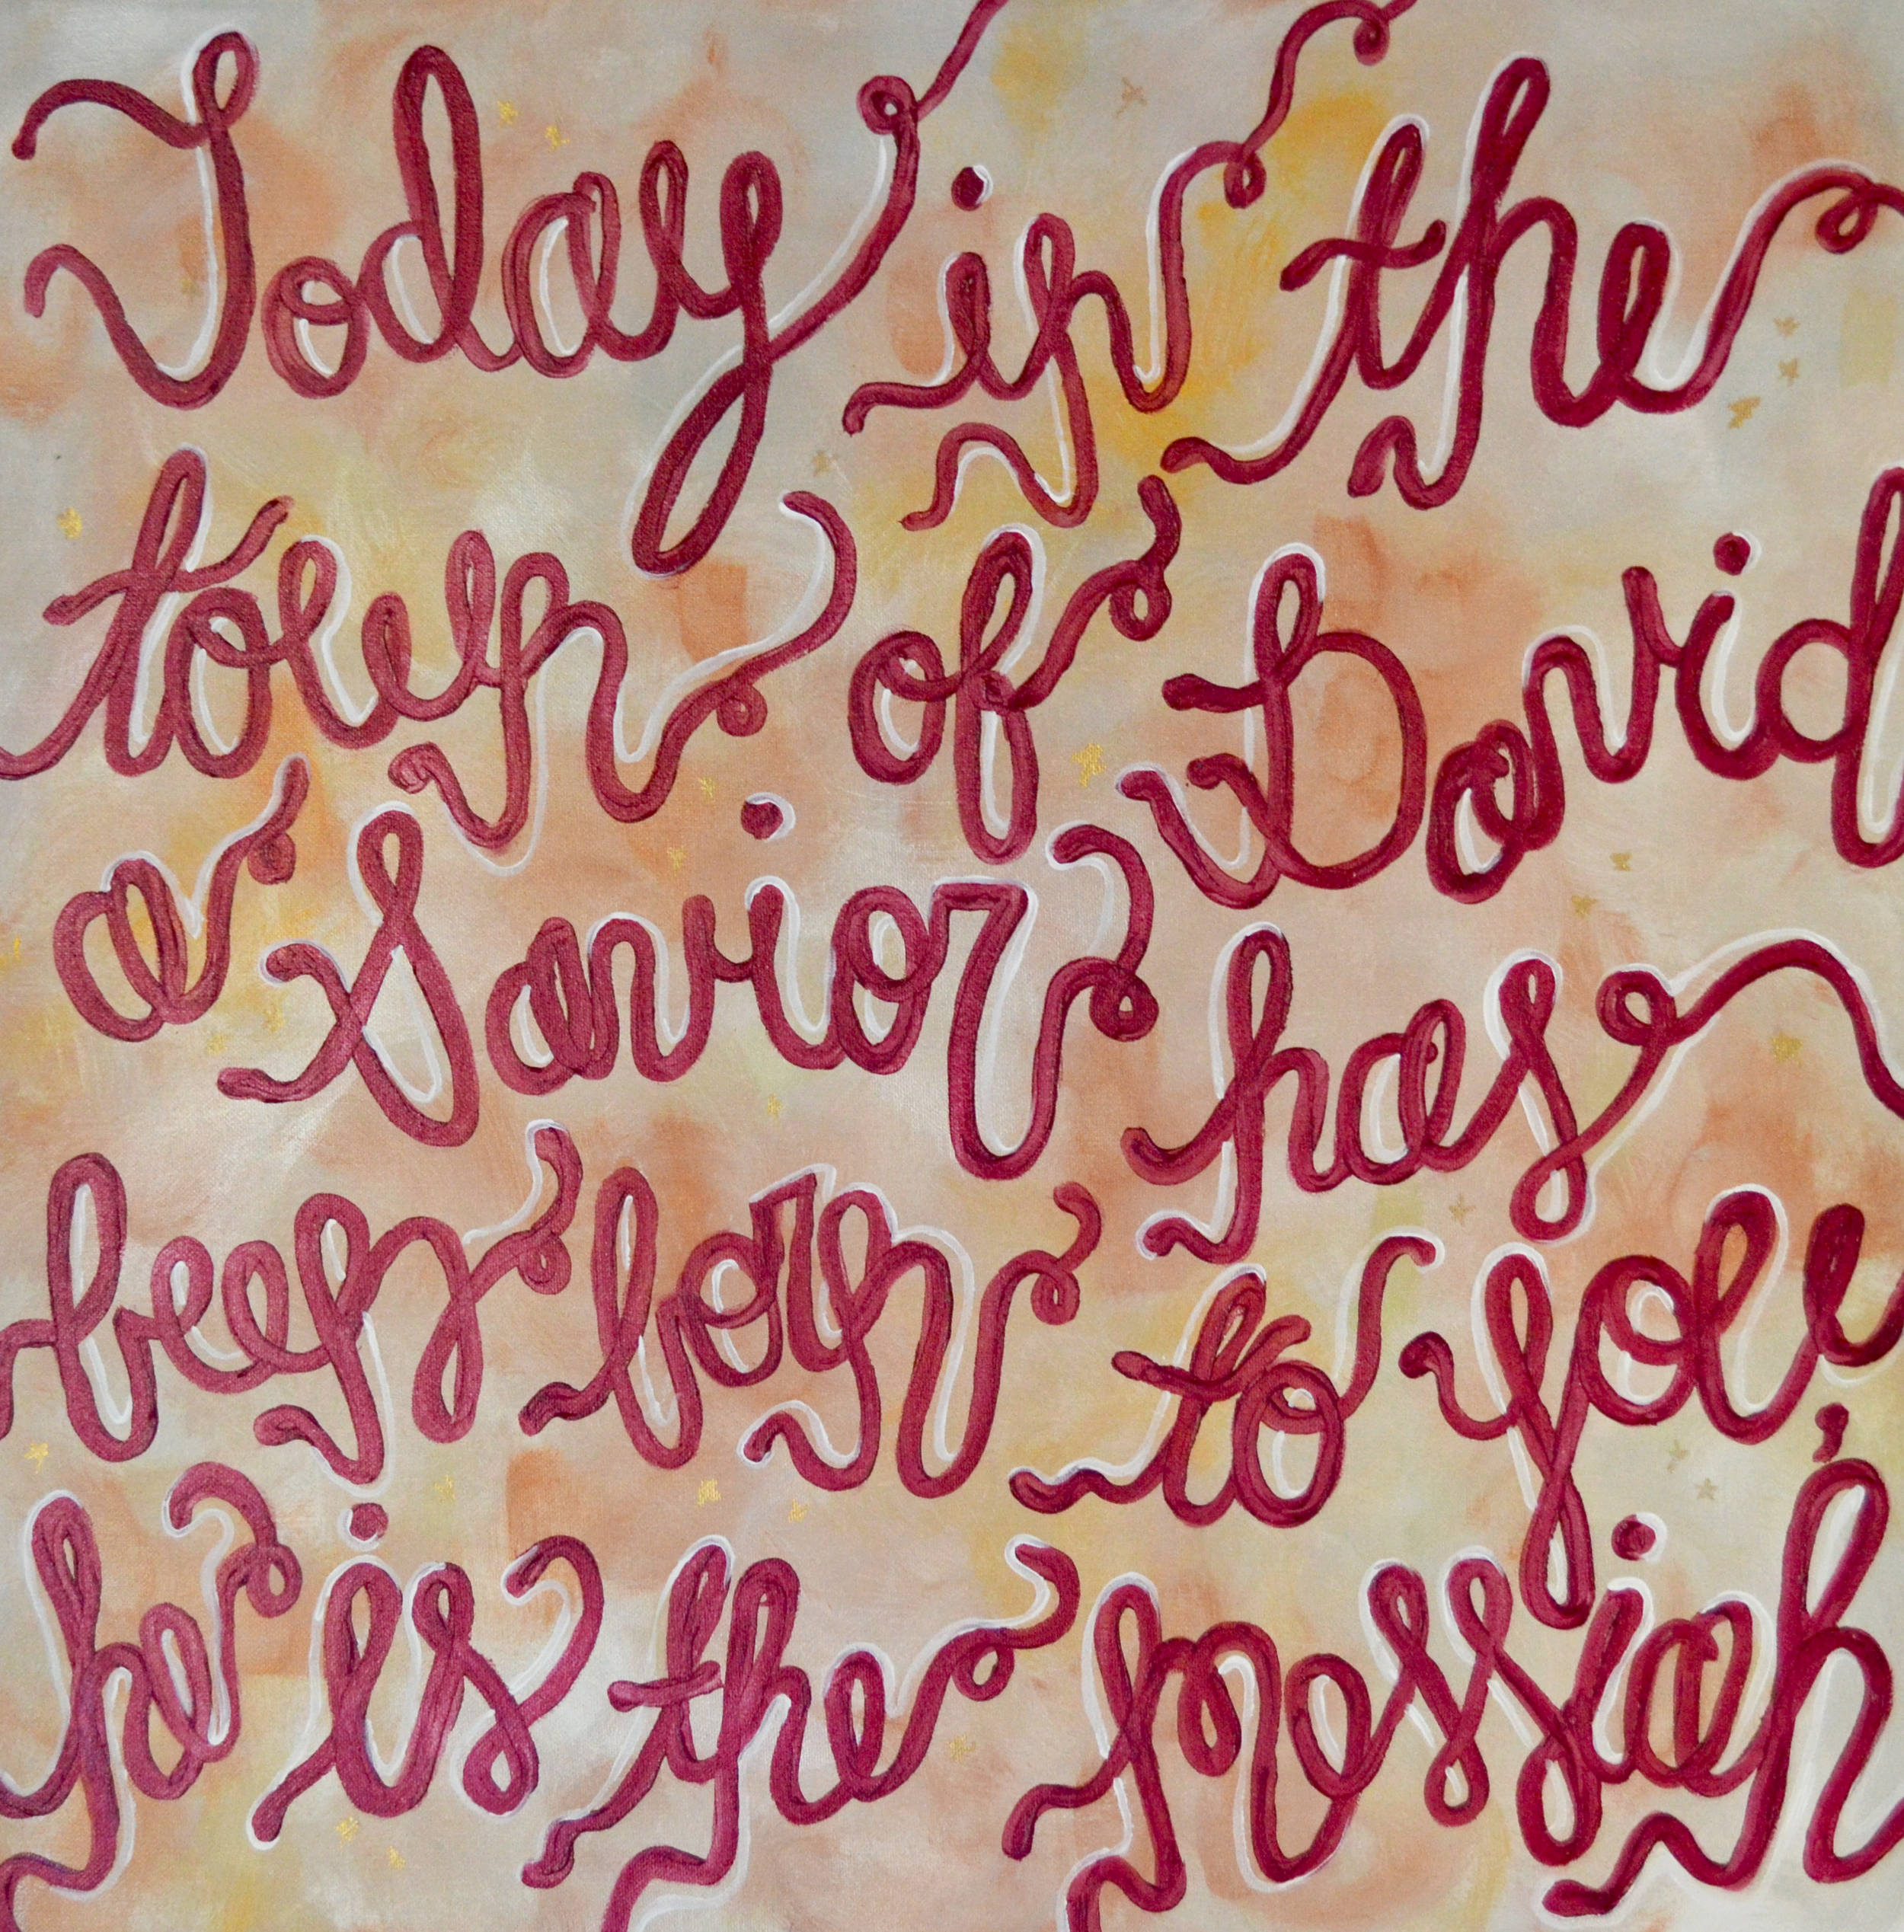 Today in the
town of David
a Savior has
been born to you,
he is the messiah